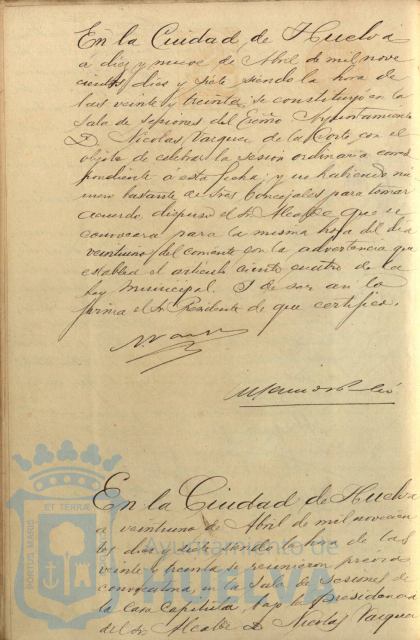 En la Ciudad de Huelva
a diez y nueve de Abril de mil nove
cientos diez y siete siendo la hora de
las veinte y treinta, se constituyó en la
Sala de sesiones del Excmo Ayuntamiento
D. Nicolas Vazquez de la Corte con el
objeto de celebrar la sesion ordinaria corres
pondiente á esta fecha; y no habiendo nú
mero bastante de Sres Concejales para tomar
acuerdo dispuso el Sr Alcalde que se
convocara para la misma hora del dia
veintiuno del corriente con la advertencia que
establece el articulo ciento cuatro de la
Ley Municipal. Y de
firma el Sr Presidente de que certifico.
En la Ciudad de Huelva
a veintiuno de Abril de mil novecien
tos diez y siete siendo la hora de las
veinte y treinta se reunieron previa
convocatoria, en la Sala de sesiones de
la Casa Capitular, bajo la presidencia
del Sr Alcalde D. Nicolas Vazquez
PORTUS MARIS
ET TERRÆ
Ayuntamiento de
Huelva